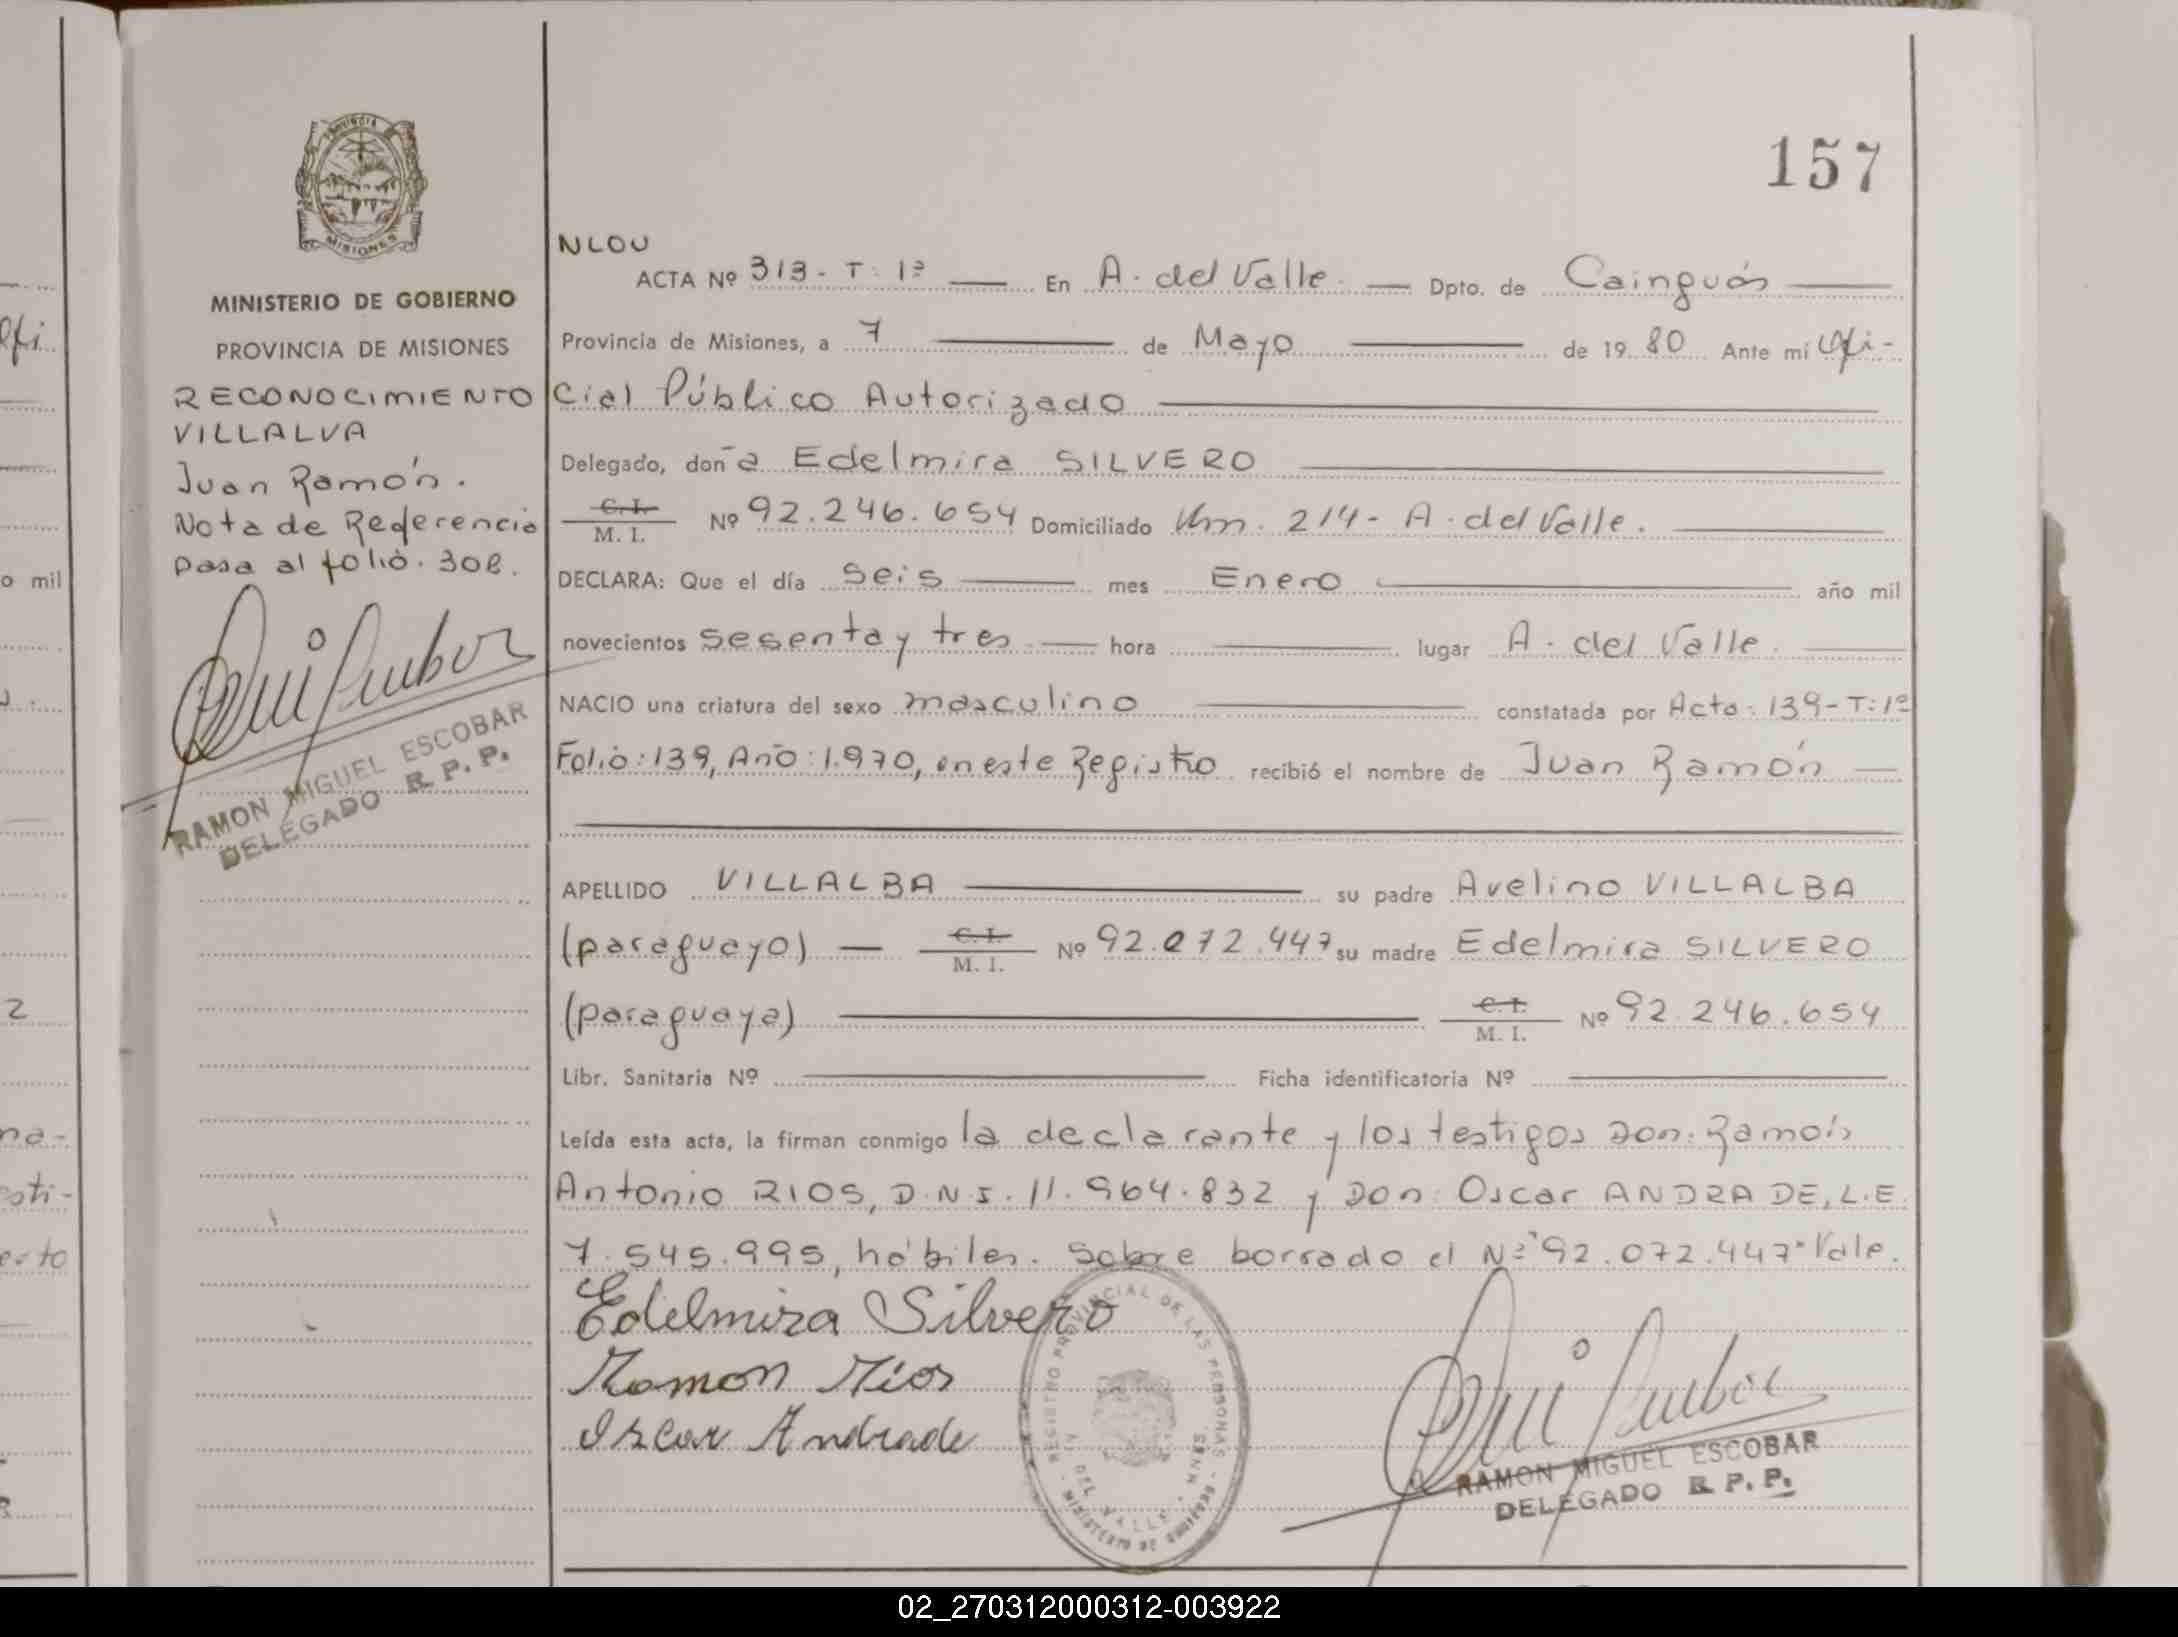 PROVINCIA
MISIONES
MINISTERIO DE GOBIERNO
PROVINCIA DE MISIONES
RECONOCIMIENTO
VILLALVA
Juan Ramón.
Nota de Referencia
pasa al folio. 308.
RAMON MIGUEL ESCOBAR
DELEGADO R. P. P.
157
NLOU
ACTA Nº 313 - T: 1º En A. del Valle. Dpto. de Cainguás
Provincia de Misiones, a 7 de Mayo de 19 80 Ante mí Ofi-
cial Público Autorizado
Delegado, doña Edelmira SILVERO
C. I.
M. I. Nº 92.246.654 Domiciliado Km. 214 - A. del Valle.
DECLARA: Que el día seis mes Enero año mil
novecientos sesenta y tres hora lugar A. del Valle.
NACIO una criatura del sexo masculino constatada por Acta: 139 - T: 1º
Folio: 139, Año: 1.970, en este Registro recibió el nombre de Juan Ramón
APELLIDO VILLALBA su padre Avelino VILLALBA
(paraguayo) C. I.
M. I. Nº 92.072.447 su madre Edelmira SILVERO
(paraguaya) C. I.
M. I. Nº 92.246.654
Libr. Sanitaria Nº Ficha identificatoria Nº
Leída esta acta, la firman conmigo la declarante y los testigos Don: Ramón
Antonio RIOS, D.N.I. 11.964.832 y Don: Oscar ANDRADE, L.E.
7.545.995, hábiles. Sobre borrado el Nº "92.072.447" Vale.
Edelmira Silvero
Ramon Rios
Oscar Andrade
REGISTRO PROVINCIAL DE LAS PERSONAS
DEL VALLE - MNES
MINISTERIO DE GOBIERNO
RAMON MIGUEL ESCOBAR
DELEGADO R. P. P.
ofi
o mil
2
na-
sti-
erto
02_270312000312-003922